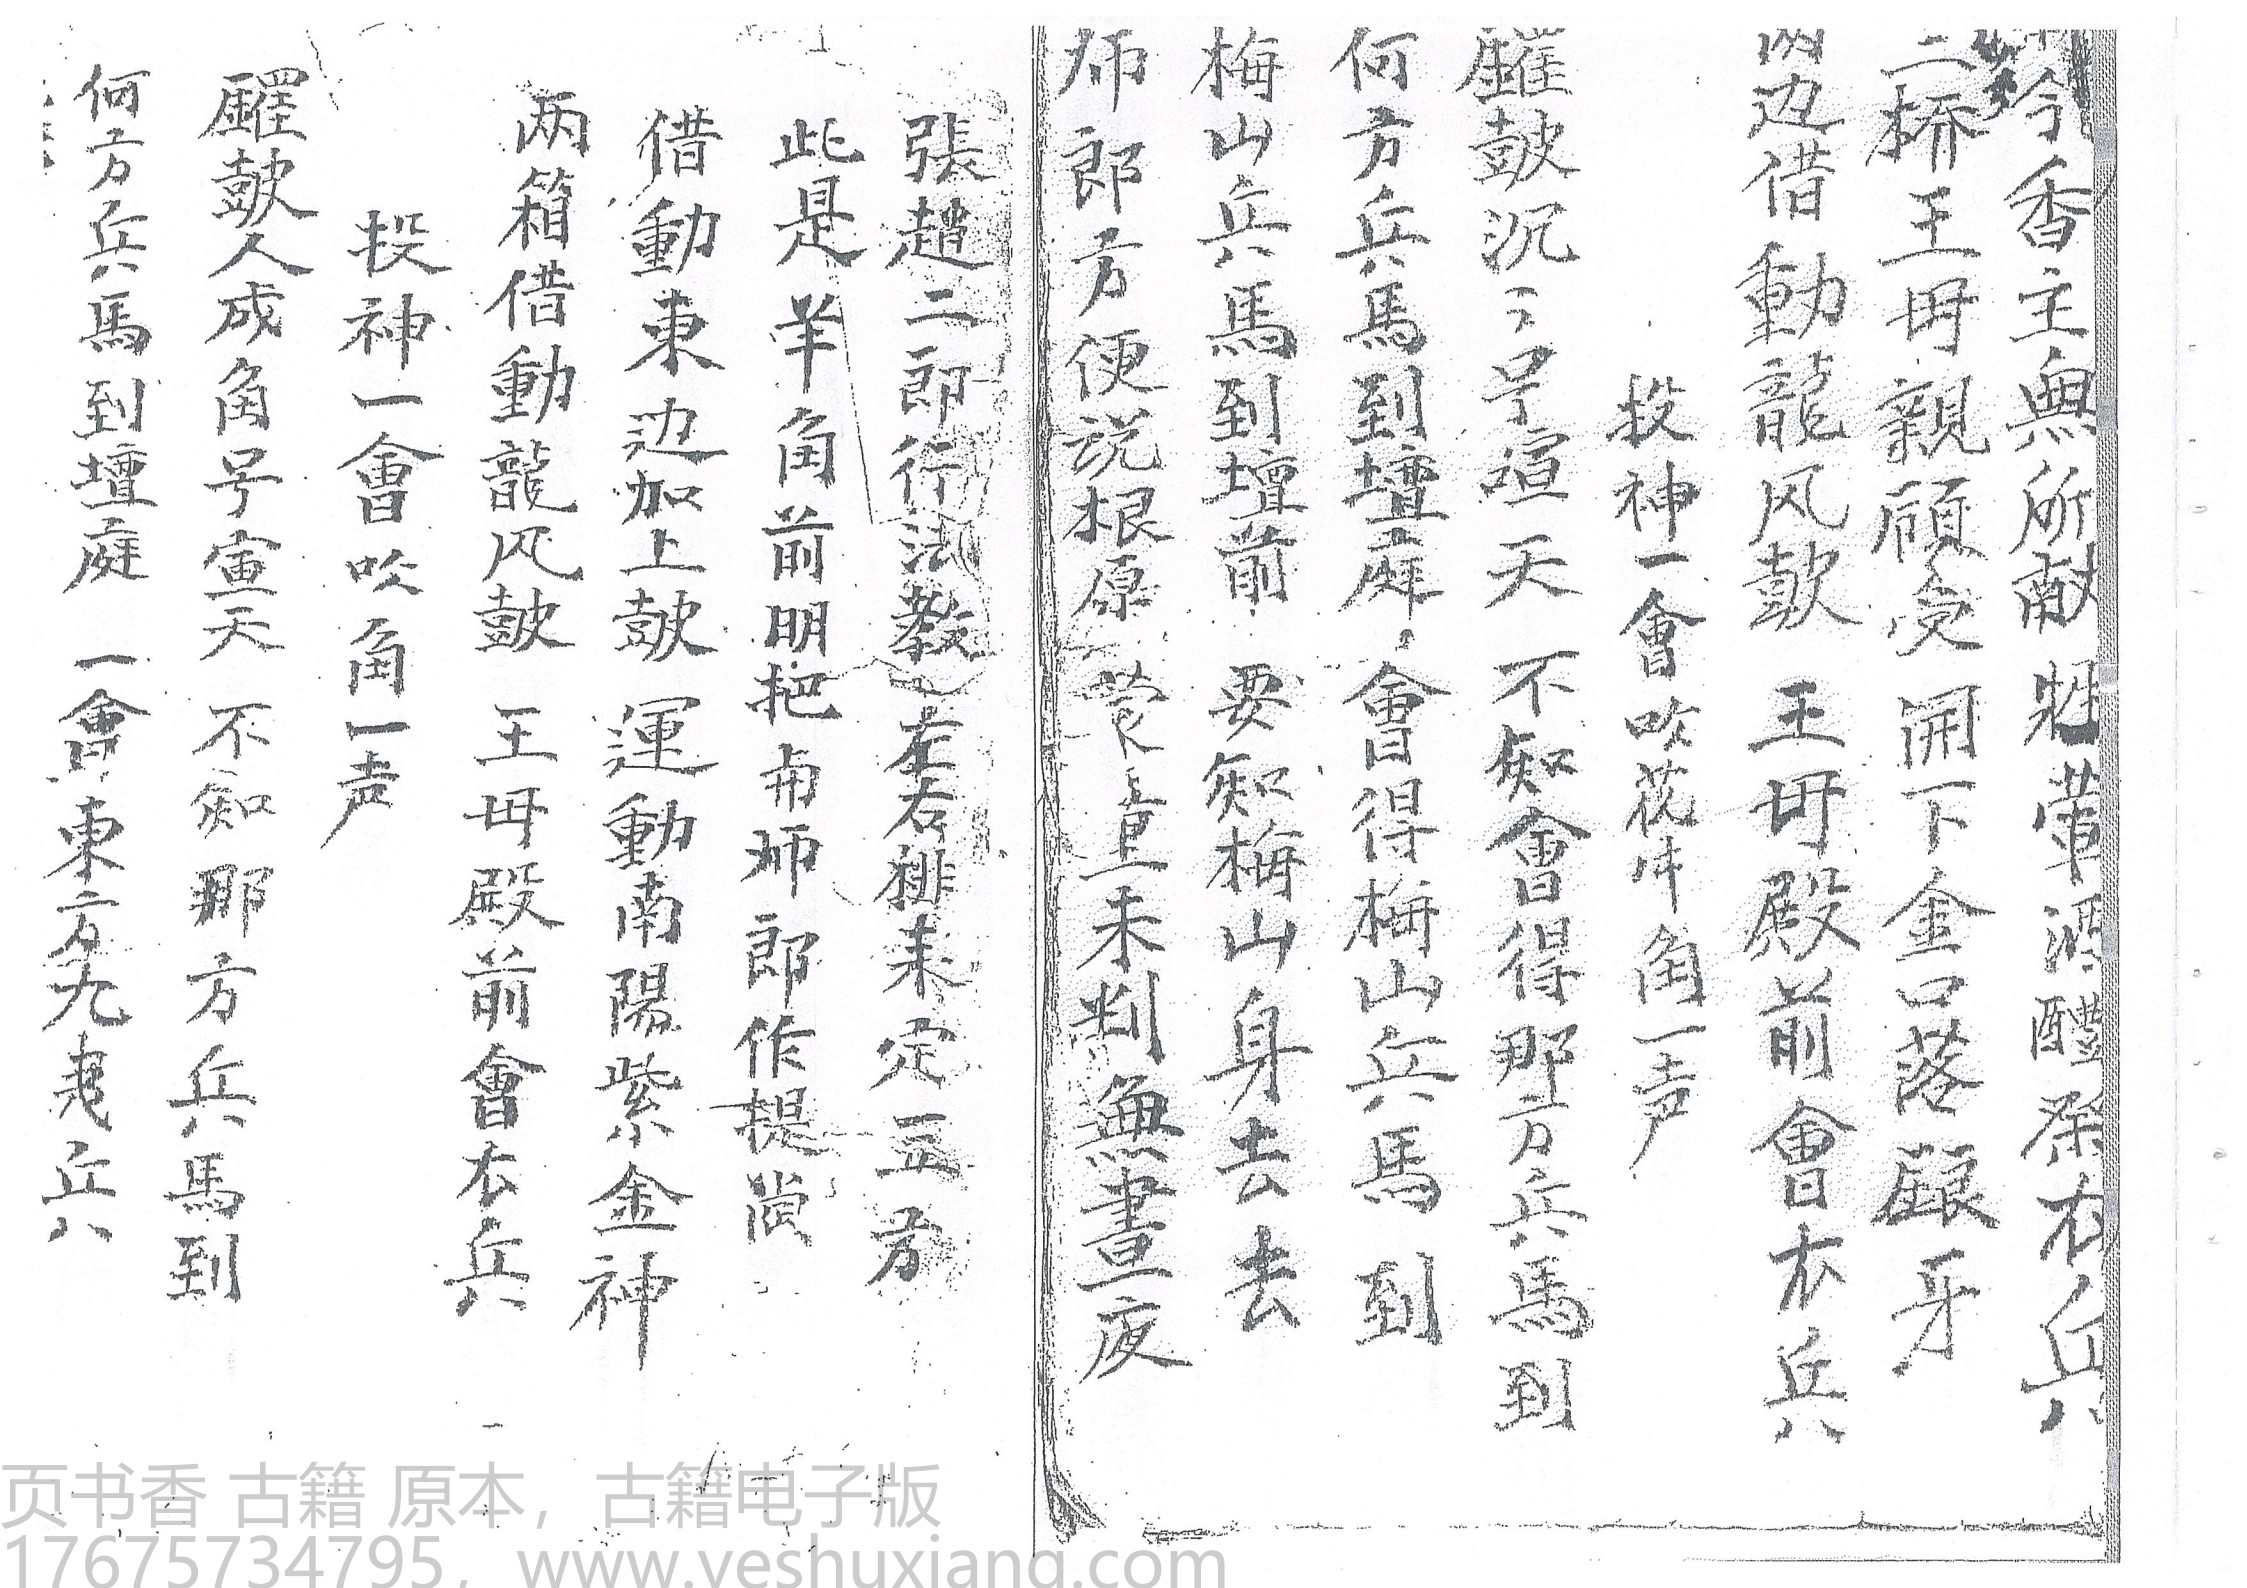 吟香主無所献 牲葷酒醴祭衣兵
二桥王毋親顔受 開下金口落龈牙
两边借動龍风鼓 王毋殿前會衣兵
投神一會吹花牛角一声
鼓沉〻号喧天 不知會得那方兵馬到
何方兵馬到壇庭 會得梅山兵馬到
梅山兵馬到壇前 要知梅山身去去
师郎方便说根原 童未判無晝夜
張趙二郎行法教 左右排来定五方
此是羊角前明把 师郎作提嘗
借動東边加上鼓 運動南陽紫金神
两箱借動龍风鼓 王毋殿前會衣兵
投神一會吹角一声
鼓人成角号宣天 不知那方兵馬到
何方兵馬到壇庭 一會東方九夷兵
页书香 古籍 原本，古籍电子版
17675734795，www.yeshuxiang.com